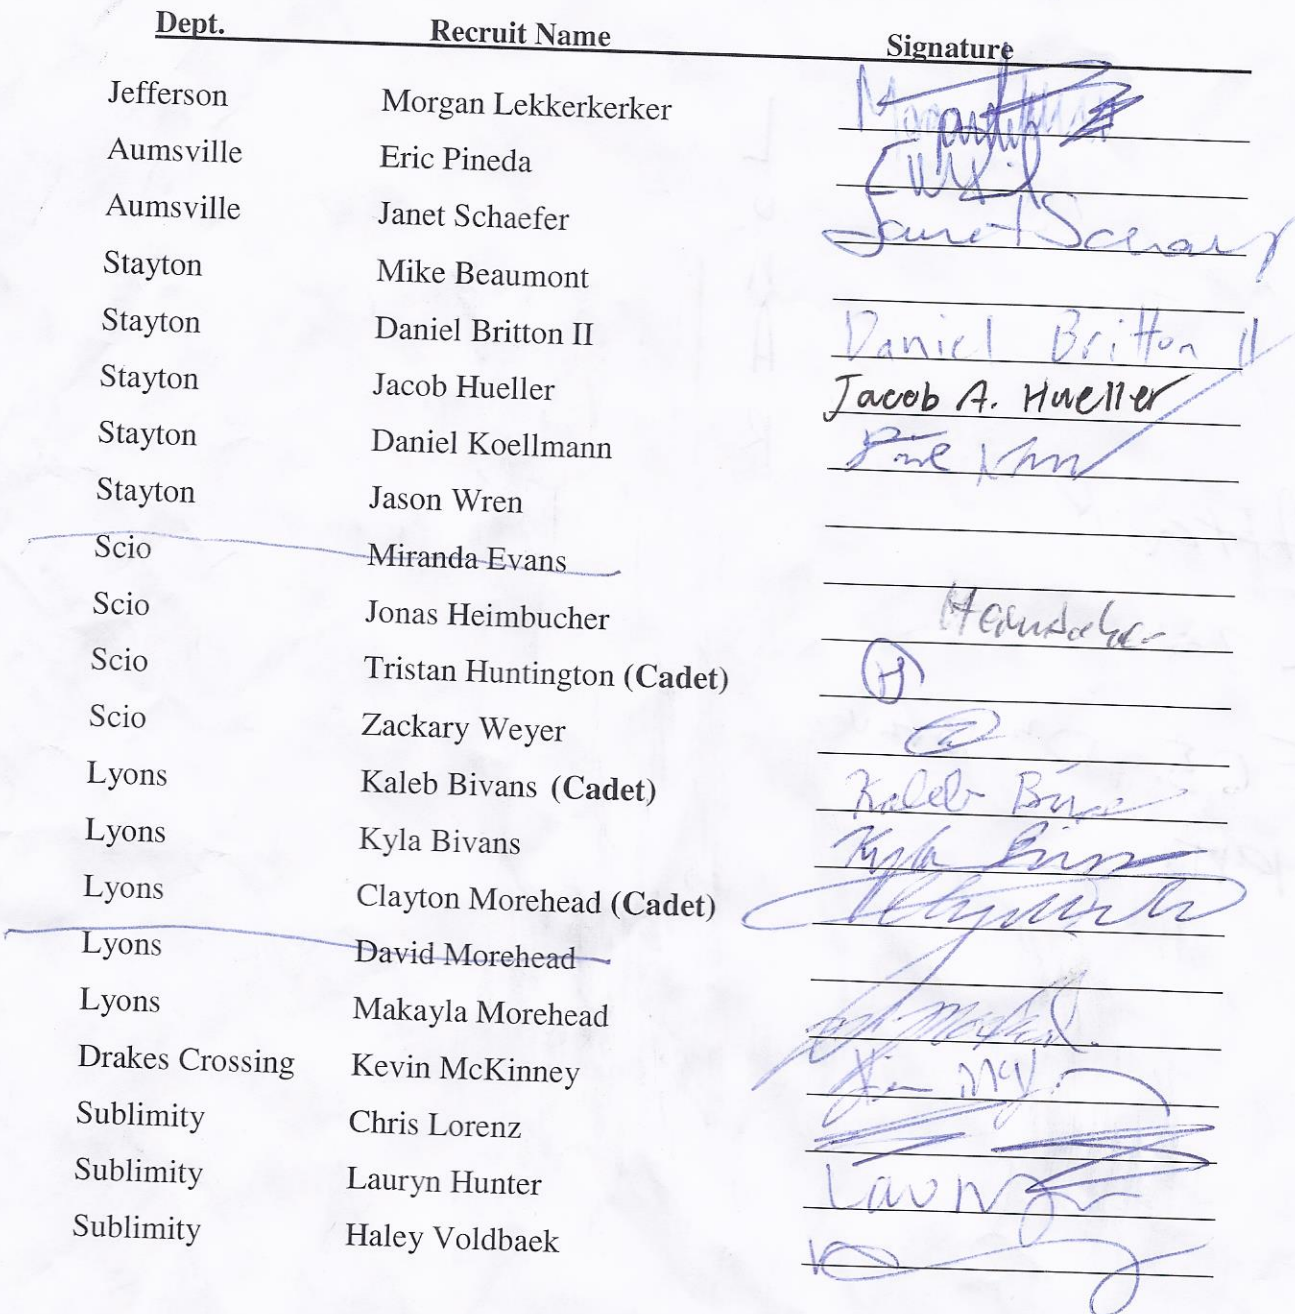 Dept. Recruit Name Signature
Jefferson Morgan Lekkerkerker
Aumsville Eric Pineda
Aumsville Janet Schaefer Janet Schaefer
Stayton Mike Beaumont
Stayton Daniel Britton II Daniel Britton II
Stayton Jacob Hueller Jacob A. Hueller
Stayton Daniel Koellmann
Stayton Jason Wren
Scio Miranda Evans
Scio Jonas Heimbucher
Scio Tristan Huntington (Cadet) H
Scio Zackary Weyer
Lyons Kaleb Bivans (Cadet) Kaleb
Lyons Kyla Bivans Kyla
Lyons Clayton Morehead (Cadet)
Lyons David Morehead
Lyons Makayla Morehead
Drakes Crossing Kevin McKinney
Sublimity Chris Lorenz
Sublimity Lauryn Hunter
Sublimity Haley Voldbaek